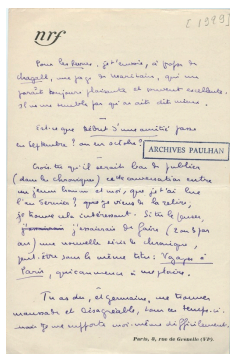 nrf
[1949]
Pour les Roques. je t'envoie, à propos de
Chagall, une page de Marchais, qui me
paraît toujours plaisante et souvent excellente.
Il ne me semble pas qu'on ait dit mieux.
Est-ce que Début d'une amitié passe
en septembre ? ou en octobre ?
ARCHIVES PAULHAN
Crois-tu qu'il serait bon de publier
(dans les chroniques) cette conversation entre
un jeune homme et moi, que je t'ai lue
l'an dernier ? que je viens de la relire,
je trouve cela intéressant. Si tu le juges,
j'aimerais de faire (2 ou 3 par
an) une nouvelle série de chronique,
peut-être sous le même titre : Voyages à
Paris, qui commence à me plaire.
Tu as dû, et Germaine, me trouver
maussade et désagréable, tous ces temps-ci.
mais je me supporte moi-même difficilement.
Paris, 5, rue de Grenelle (VIe).